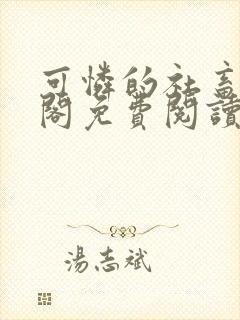 可憐的社畜
閣免費閱讀
湯志斌